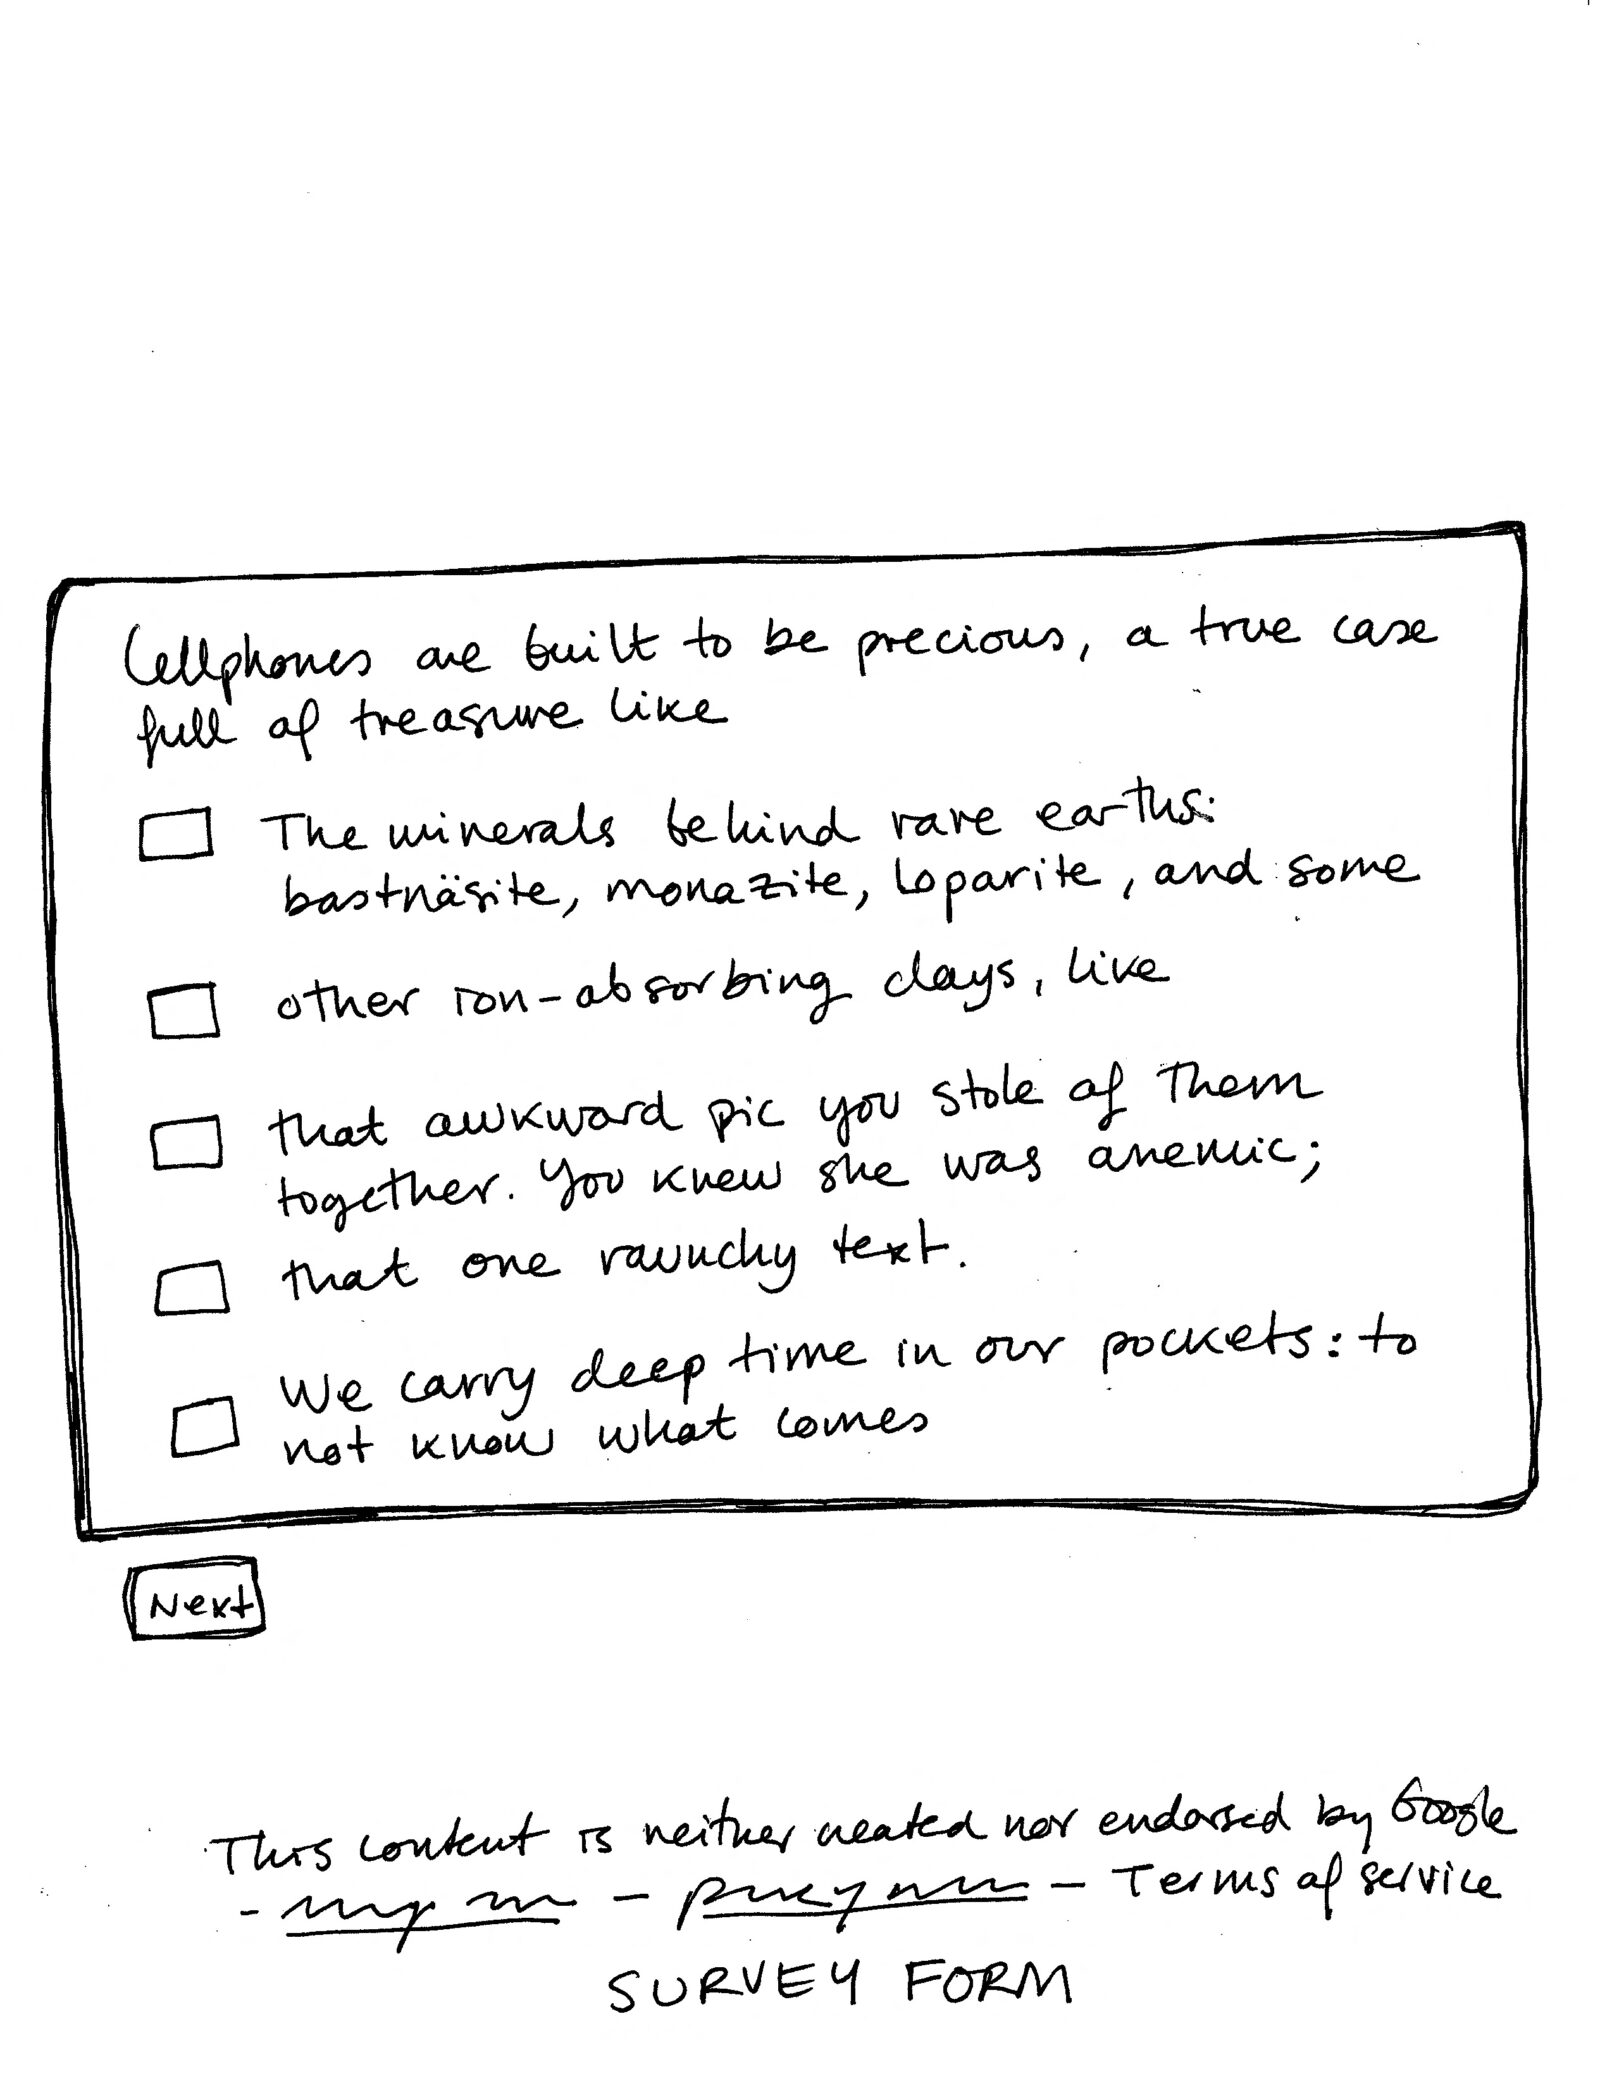 Cellphones are built to be precious, a true case
full of treasure like
The minerals behind rare earths:
bastnäsite, monazite, loparite, and some
other ion-absorbing clays, like
that awkward pic you stole of them
together. You knew she was anemic;
that one raunchy text.
We carry deep time in our pockets: to
not know what comes
Next
This content is neither created nor endorsed by Google
- - - Terms of service
SURVEY FORM